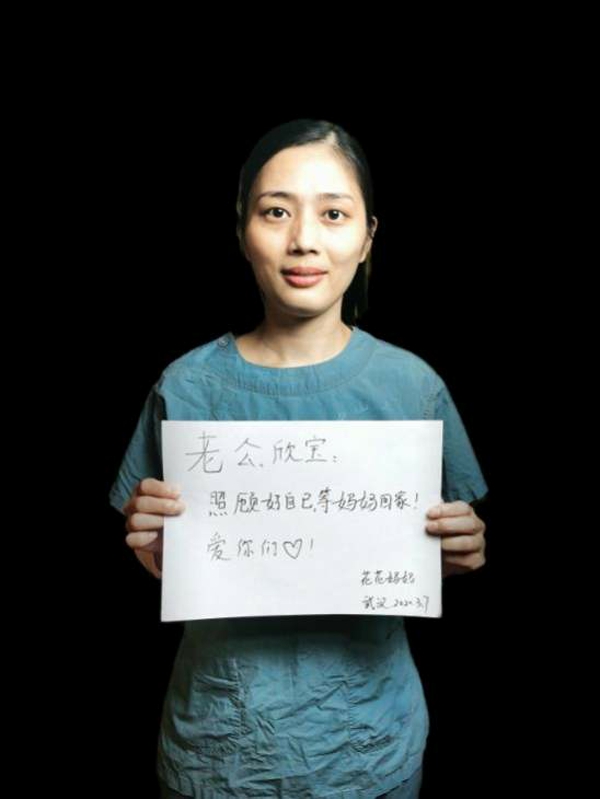 老公、欣宝：
照顾好自己，等妈妈回家！
爱你们♡！
花花妈妈
武汉 2020.3.7